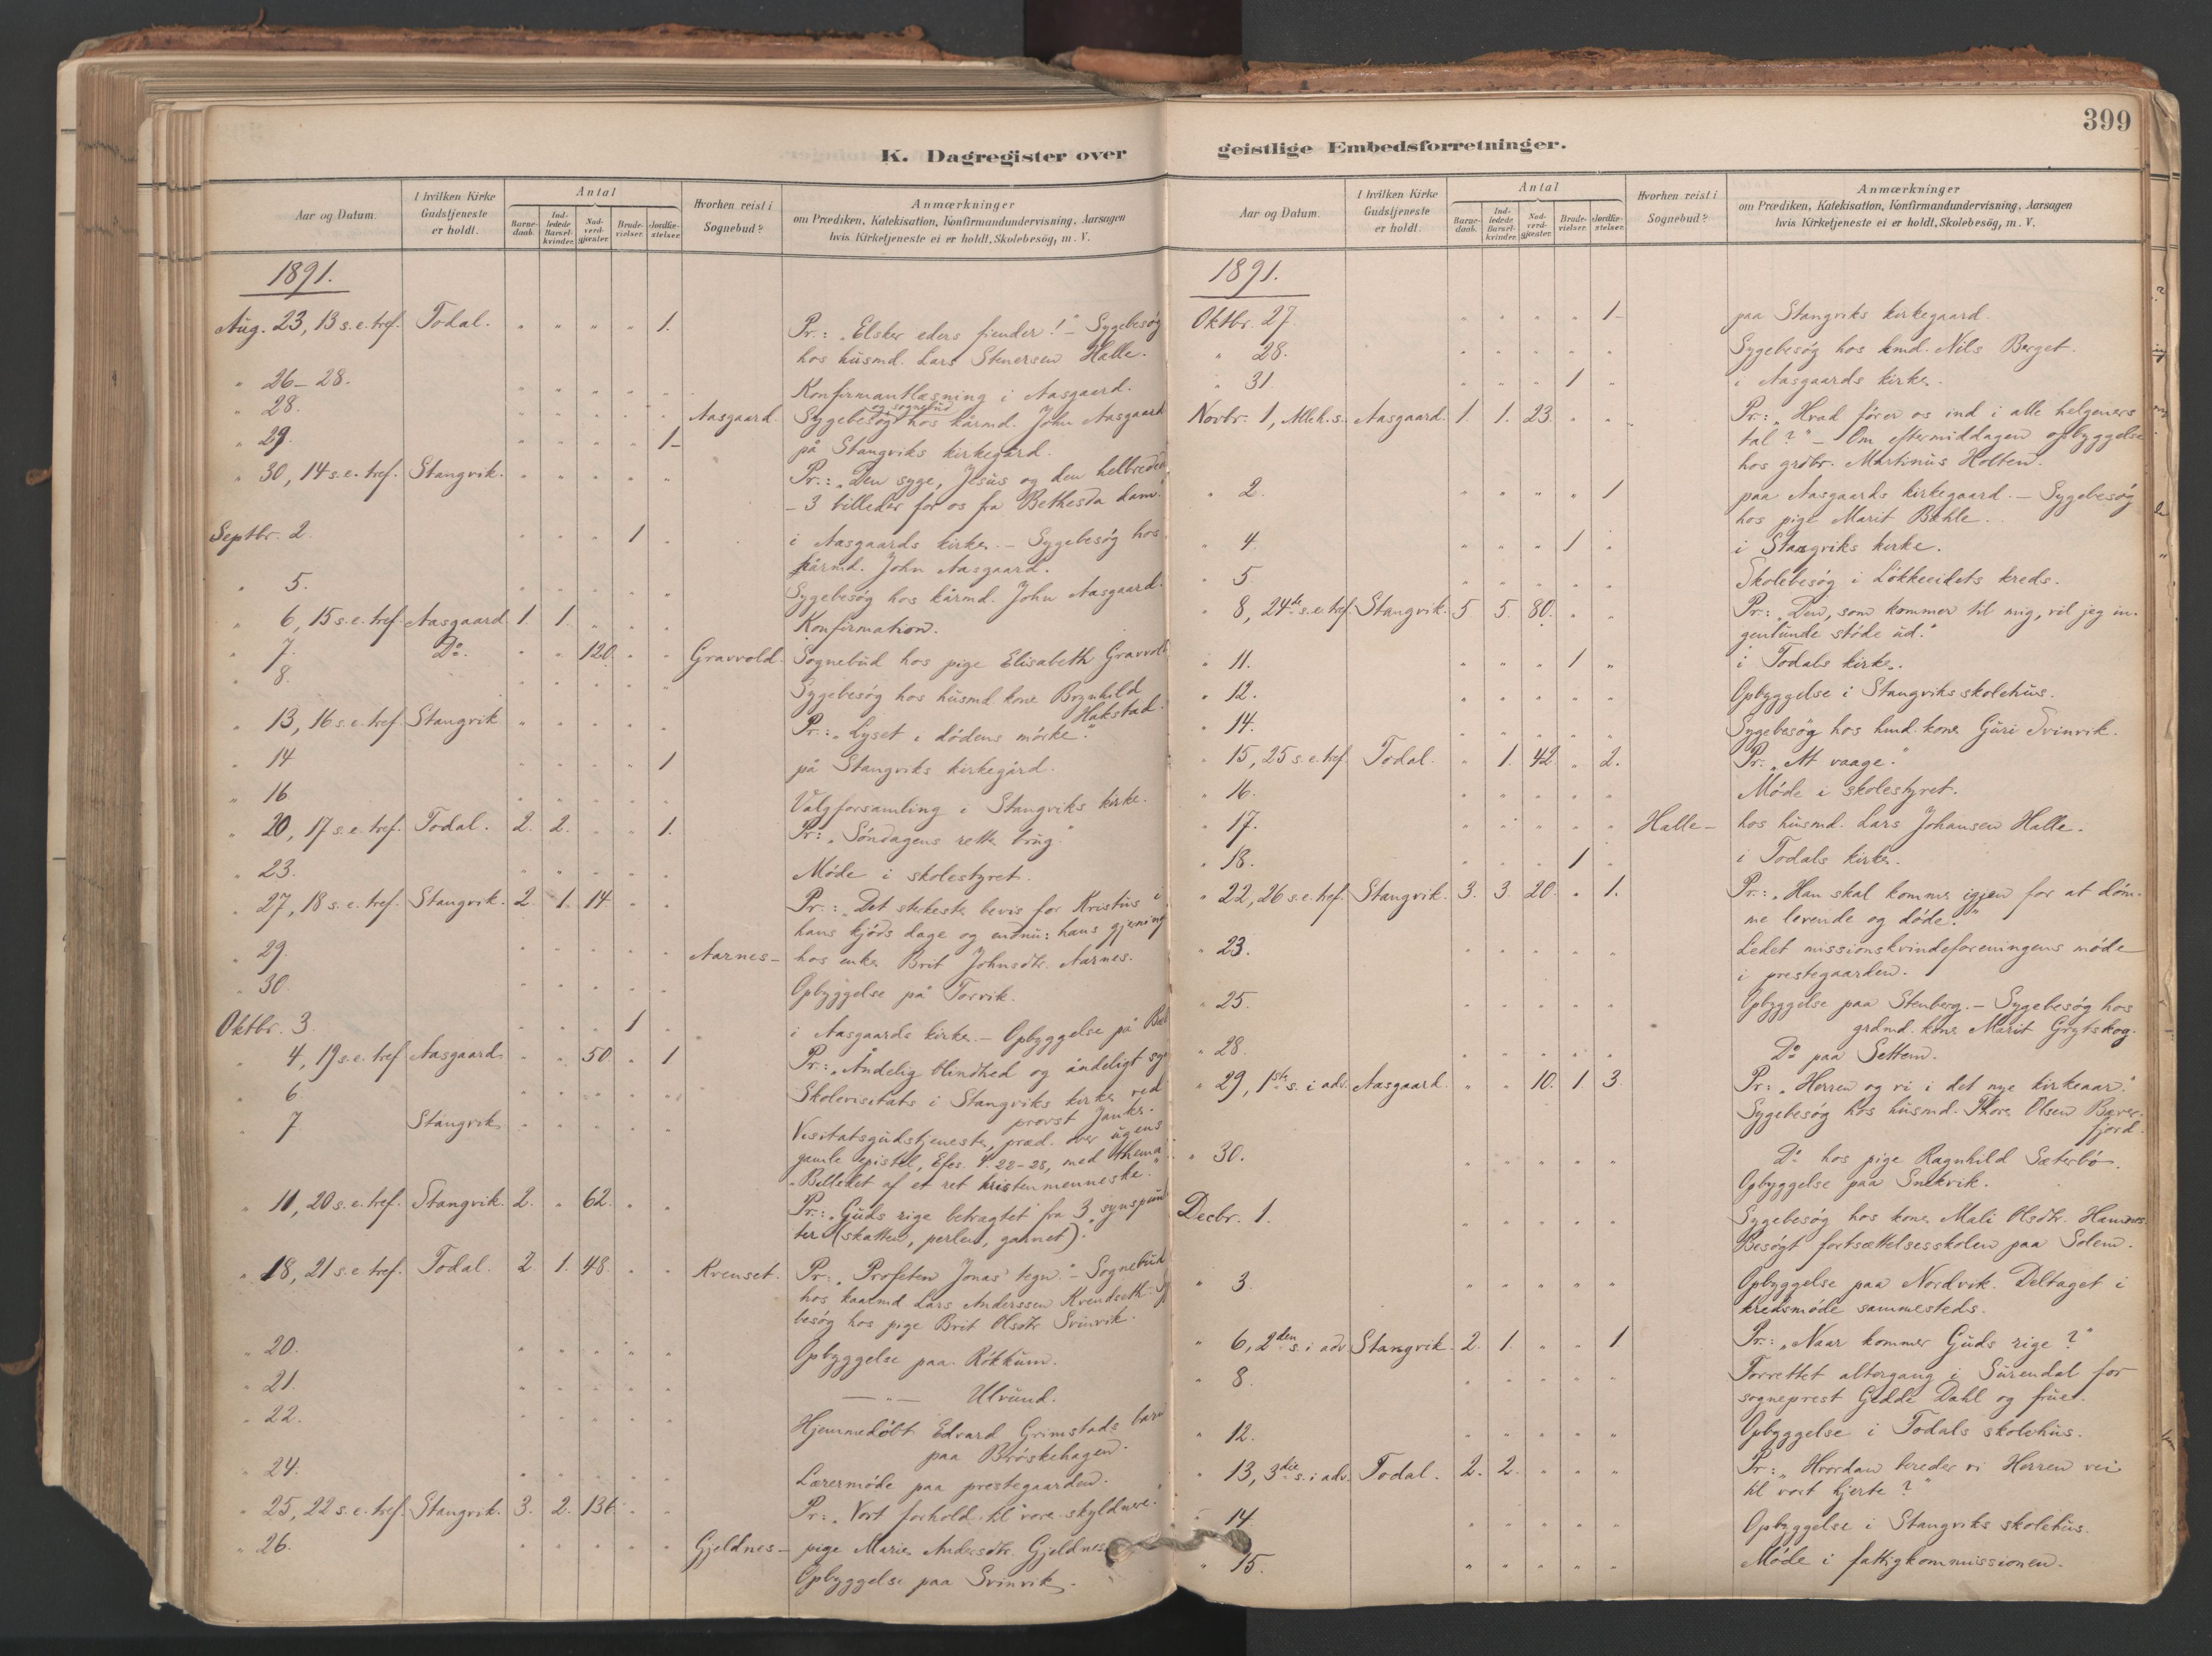 K. Dagregister over
Aar og Datum.
I hvilken Kirke Gudstjeneste er holdt.
Antal
Barne-daab.
Ind-ledede Barsel-kvinder.
Nad-verd-gjæster.
Brude-vielser.
Jordfæ-stelser.
Hvorhen reist i Sognebud?
Anmærkninger
om Prædiken, Katekisation, Konfirmandundervisning, Aarsagen
hvis Kirketjeneste ei er holdt, Skolebesøg, m. V.
1891.
Aug. 23, 13 s. e. tref. Todal. " " " " 1. Pr.: "Elsker eders fiender!" – Sygebesøg
hos husmd. Lars Stenersen Halle.
" 26–28. " " " " " Konfirmantlæsning i Aasgaard.
" 28. " " " " " Aasgaard. Sygebesøg og sognebud hos kårmd. John Aasgaard
" 29. " " " " 1– på Stangviks kirkegård.
" 30, 14 s. e. tref. Stangvik. " " " " " Pr.: "Den syge, Jesus og den helbredede
– 3 billeder for os fra Bethesda dam."
Septbr. 2. " " " 1 " i Aasgaards kirke. – Sygebesøg hos
kårmd. John Aasgaard.
" 5. " " " " " Sygebesøg hos kårmd. John Aasgaard.
" 6, 15 s. e. tref. Aasgaard 1. 1. " " " Konfirmation.
" 7. Do. " " 120. " " Gravvold. Sognebud hos pige Elisabeth Gravvold
" 8. " " " " " Sygebesøg hos husmd kone Brynhild
Hakstad.
" 13, 16 s. e. tref. Stangvik " " " " " Pr.: "Lyset i dödens mörke."
" 14 1 på Stangviks kirkegård.
" 16 " " " " " Valgforsamling i Stangviks kirke.
" 20, 17 s. e. tref. Todal. 2. 2. " " 1. Pr.: "Söndagens rette brug."
" 23. " " " " " Møde i skolestyret.
" 27, 18 s. e. tref. Stangvik. 2. 1. 14. " " Pr.: "Det sterkeste bevis for Kristus i
hans kjöds dage og endnu: hans gjerning
" 29. " " " " " Aarnes– hos enke Brit Johnsdtr. Aarnes.
" 30. " " " " " Opbyggelse på Torvik.
Oktbr. 3. " " " 1 " i Aasgaards kirke. – Opbyggelse på
" 4, 19 s. e. tref Aasgaard " " 50 " 1 Pr.: "Åndelig blindhed og åndeligt syn
" 6. " " " " " Skolevisitats i Stangviks kirke ved
provst
" 7. Stangvik " " " " " Visitatsgudstjeneste, præd. over ugens
gamle epistel, Efes. 4. 22–28, med thema:
"Billedet af et ret kristenmenneske."
" 11, 20 s. e. tref. Stangvik. 2. " 62. " " Pr.: "Guds rige betragtet fra 3 synspunk
ter (skatten, perlen, garnet)."
" 18, 21 s. e. tref. Todal. 2. 1. 48. " " Kvenset. Pr.: "Profeten Jonas' tegn." – Sognebud
hos kaarmd Lars Anderssen Kvendseth. Sy
besøg hos pige Brit Olsdtr Svinvik.
" 20. " " " " " Opbyggelse paa Rökkum.
" 21. " " " " " — " — Ulvund.
" 22. " " " " " Hjemmedöbt Edvard Grimstads barn
paa Bröskehagen.
" 24. " " " " " Lærermöde paa prestegaarden.
" 25, 22 s. e. tref. Stangvik. 3. 2. 136. " " Pr.: "Vort forhold til vore skyldnere."
" 26. " " " " " Gjeldnes– pige Marie Andersdtr. Gjeldnes
Opbyggelse paa Svinvik.
399
geistlige Embedsforretninger.
Aar og Datum.
I hvilken Kirke Gudstjeneste er holdt.
Antal
Barne-daab.
Ind-ledede Barsel-kvinder.
Nad-verd-gjæster.
Brude-vielser.
Jordfæ-stelser.
Hvorhen reist i Sognebud?
Anmærkninger
om Prædiken, Katekisation, Konfirmandundervisning, Aarsagen
hvis Kirketjeneste ei er holdt, Skolebesøg, m. V.
1891.
Oktbr. 27. " " " " 1– paa Stangviks kirkegaard.
" 28. " " " " " Sygebesøg hos kmd. Nils Berget.
" 31. " " " 1 " i Aasgaards kirke.
Novbr. 1, Alleh. s. Aasgaard. 1. 1. 23. " " Pr.: "Hvad fører os ind i alle helgeners
tal?" – Om eftermiddagen opbyggelse
hos grdbr. Martinus Holten.
" 2. " " " " 1 paa Aasgaards kirkegaard. – Sygebesøg
hos pige Marit Bæhle.
" 4. " " " 1 " i Stangviks kirke.
" 5. " " " " " Skolebesøg i Lökkeeidets kreds.
" 8, 24de s. e. tref. Stangvik. 5 5. 80. " " Pr.: "Den, som kommer til mig, vil jeg in-
genlunde støde ud."
" 11. " " " 1 " i Todals kirke.
" 12. " " " " " Opbyggelse i Stangviks skolehus.
" 14. " " " " " Sygebesøg hos hmd. kone Guri Svinvik.
" 15, 25 s. e. tref. Todal. " 1. 42. " 2. Pr. "At vaage."
" 16. " " " " " Møde i skolestyret.
" 17. " " " " " Halle– hos husmd. Lars Johansen Halle.
" 18. " " " 1 " i Todals kirke.
" 22, 26 s. e. tref. Stangvik. 3. 3. 20. " 1. Pr.: "Han skal komme igjen for at döm-
me levende og döde."
" 23. " " " " " Ledet missionskvindeforeningens møde
i prestegaarden.
" 25. " " " " " Opbyggelse paa Stenberg. – Sygebesøg hos
grdmd. kone Marit Grytskog.
" 28. " " " " " Do paa Settem.
" 29, 1ste s. i adv. Aasgaard. " " 10. 1 3. Pr.: "Herren og vi i det nye kirkeaar."
Sygebesøg hos husmd. Thore Olsen Bæver-
fjord.
" 30. " " " " " Do hos pige Ragnhild Sæterbö.
Opbyggelse paa Snekvik.
Decbr. 1. " " " " " Sygebesøg hos kone Mali Olsdtr. Hamnes.
Besøgt fortsættelsesskolen paa Solem.
" 3. " " " " " Opbyggelse paa Nordvik. Deltaget i
kredsmöde sammesteds.
" 6, 2den s. i adv. Stangvik. 2. 1. " " 1. Pr.: "Naar kommer Guds rige?"
" 8. " " " " " Forrettet altergang i Surendal for
sogneprest Gedde Dahl og frue.
" 12. " " " " " Opbyggelse i Todals skolehus.
" 13, 3die s. i adv. Todal. 2. 2. " " " Pr.: "Hvordan bereder vi Herren vei
til vort hjerte?"
" 14. " " " " " Opbyggelse i Stangviks skolehus.
" 15. " " " " " Møde i fattigkommissionen.